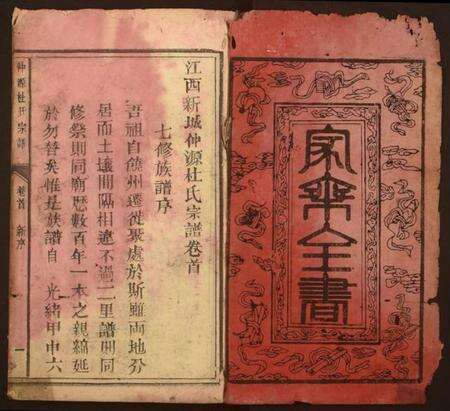 家乘全書
江西新城仲源杜氏宗譜卷首
七修族譜序
吾祖自饒州遷徙聚處於斯雖兩地分
居而土壤間隔相違不過二里譜則同
修祭則同廟歷數百年一本之親綿延
於勿替矣惟是族譜自 光緒甲申六
仲源杜氏宗譜 卷首 新序 一